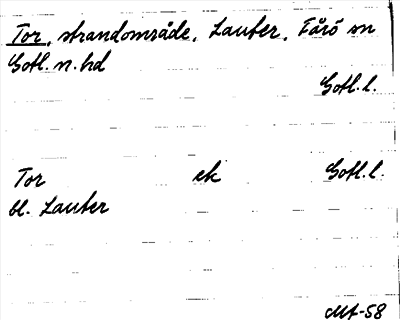 Tor, strandområde, Lauter, Fårö sn
Gotl. n. hd
Gotl. l.
Tor ek Gotl. l.
bl. Lauter
MA-58